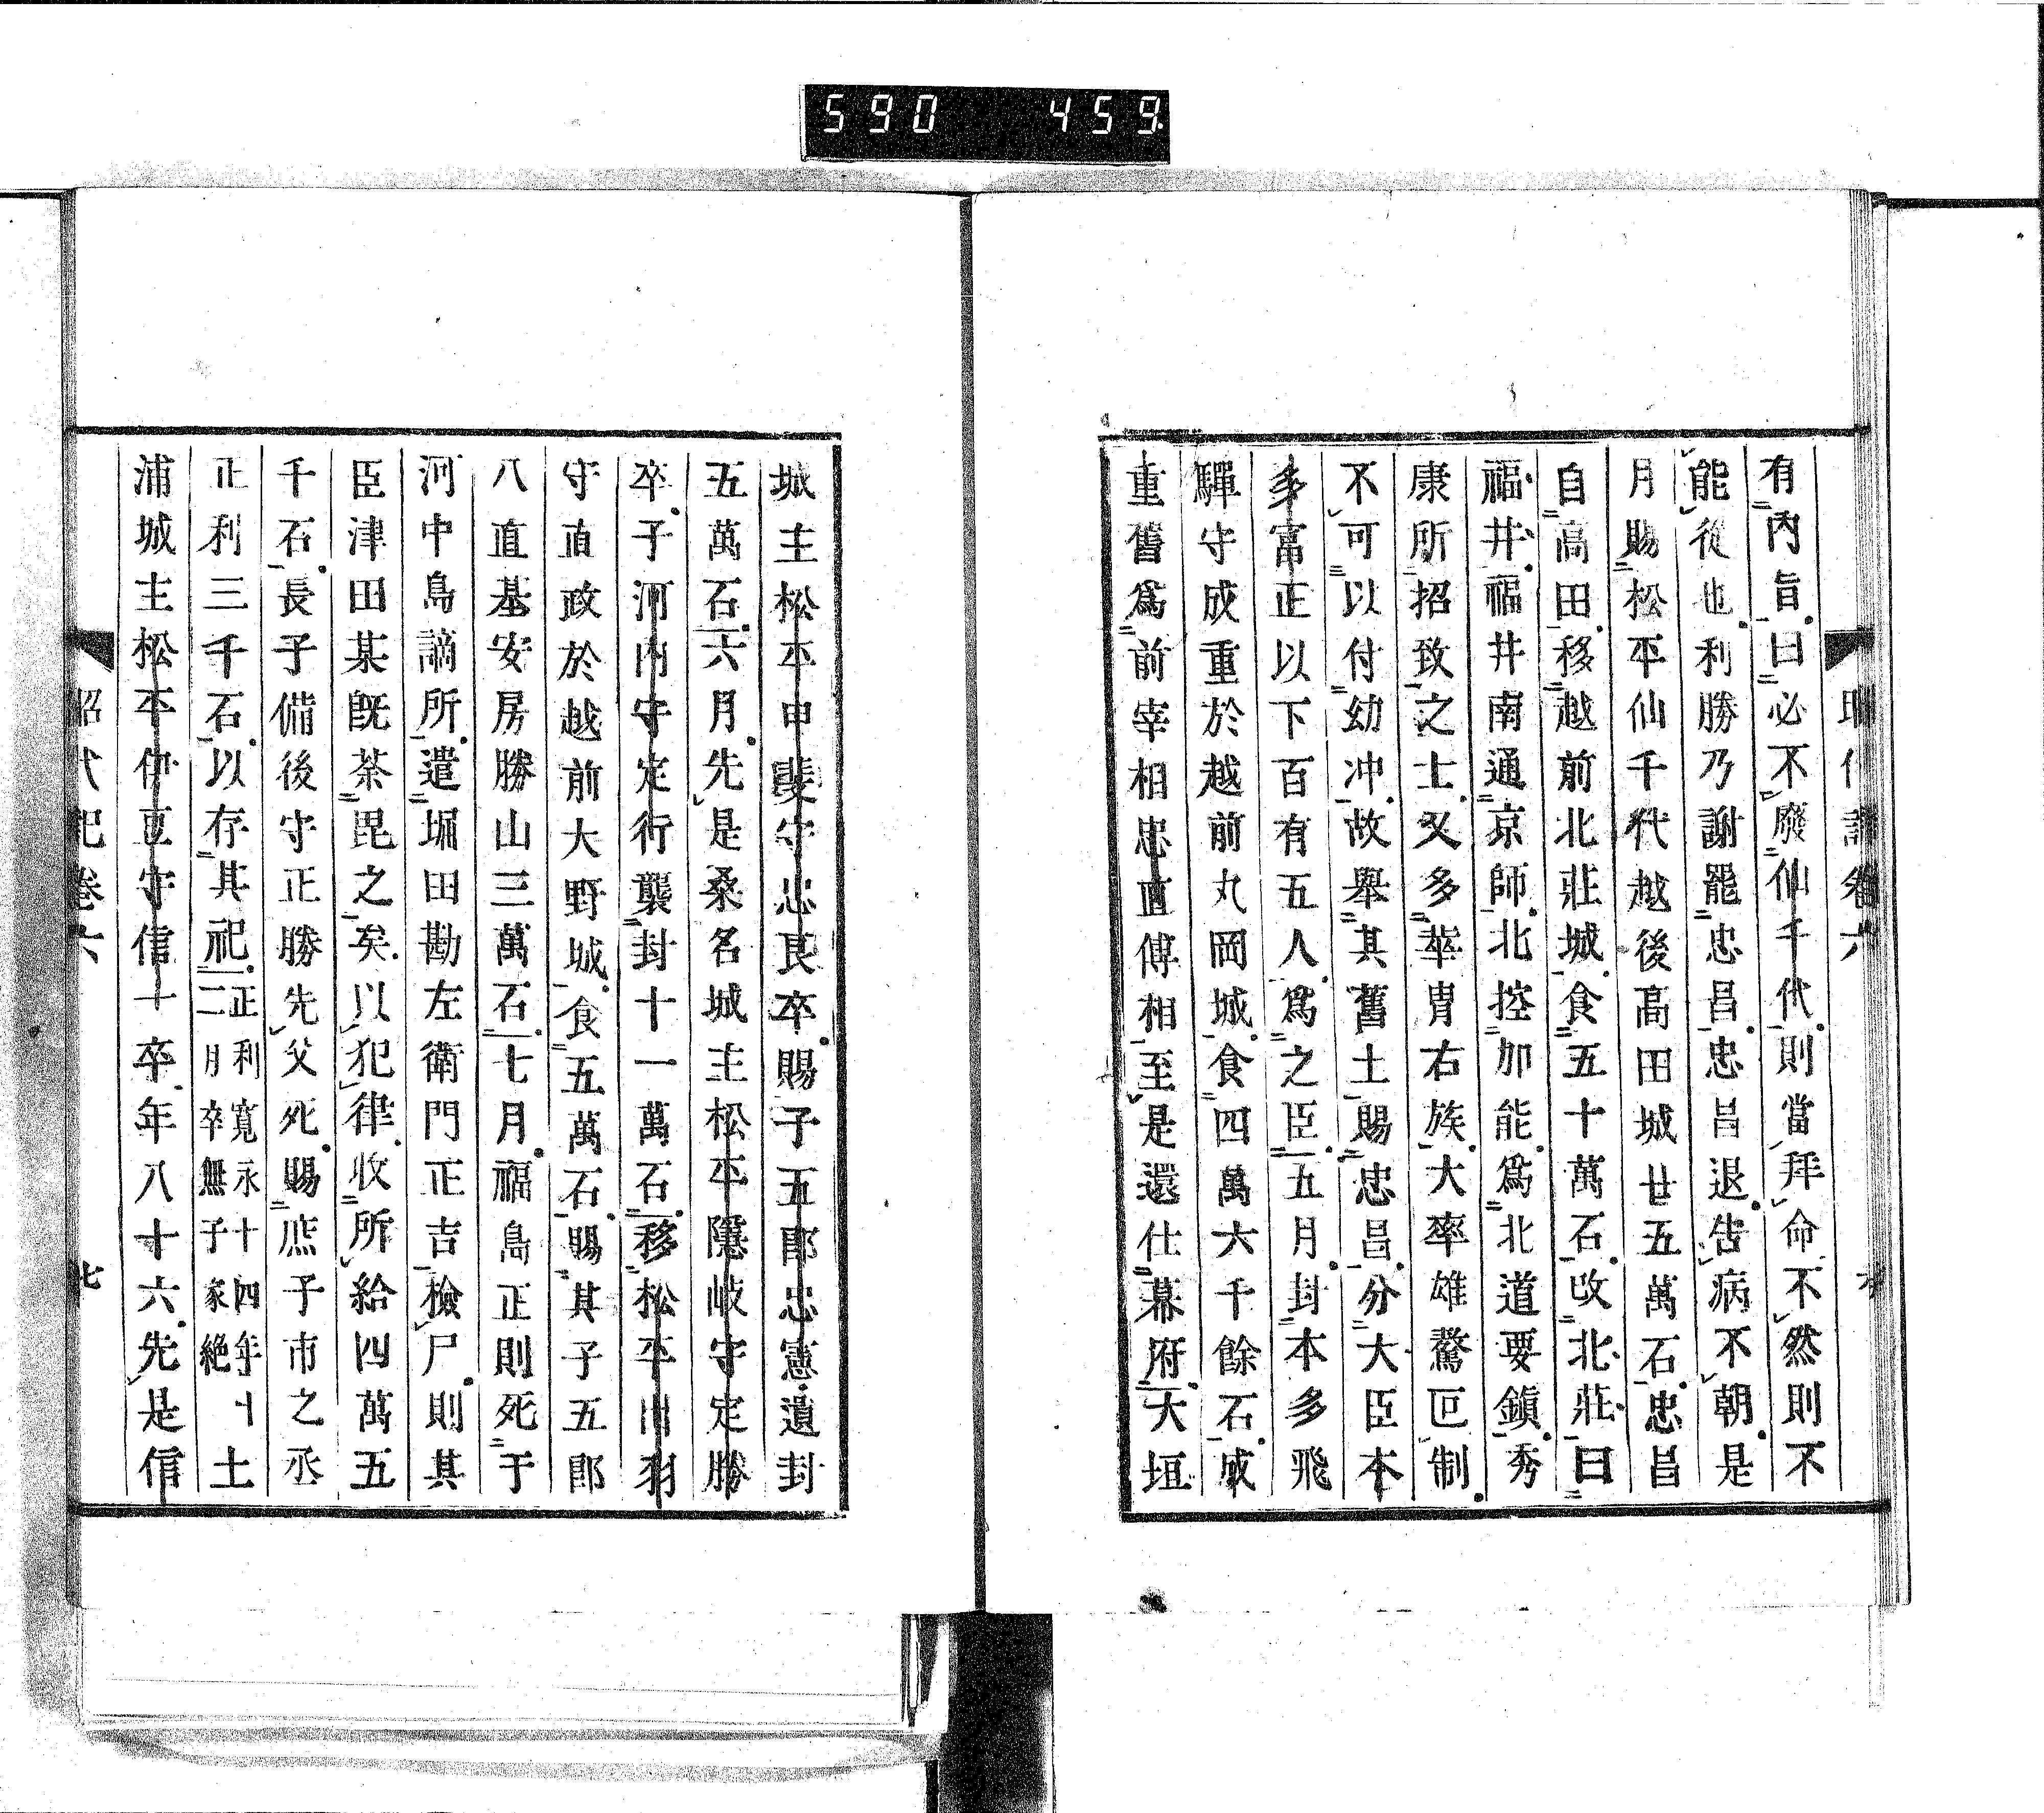 590 459
有內旨曰必不廢仙千代則當拜命不然則不
能從也利勝乃謝罷忠昌忠昌退告病不朝是
月賜松平仙千代越後高田城廿五萬石忠昌
自高田移越前北莊城食五十萬石改北莊曰
福井福井南通京師北控加能爲北道要鎭秀
康所招致之士又多華胄右族大率雄驁叵制
不可以付幼冲故舉其舊土賜忠昌分大臣本
多富正以下百有五人爲之臣五月封本多飛
驒守成重於越前丸岡城食四萬六千餘石成
重舊爲前宰相忠直傅相至是還仕幕府大垣
城主松平甲斐守忠良卒賜子五郎忠憲遺封
五萬石六月先是桑名城主松平隱岐守定勝
卒子河內守定行襲封十一萬石移松平出羽
守直政於越前大野城食五萬石賜其子五郎
八直基安房勝山三萬石七月福島正則死于
河中島謫所遣堀田勘左衛門正吉檢尸則其
臣津田某旣茶毘之矣以犯律收所給四萬五
千石長子備後守正勝先父死賜庶子市之丞
正利三千石以存其祀正利寬永十四年十二月卒無子家絕土
浦城主松平伊豆守信一卒年八十六先是信
昭代記卷六